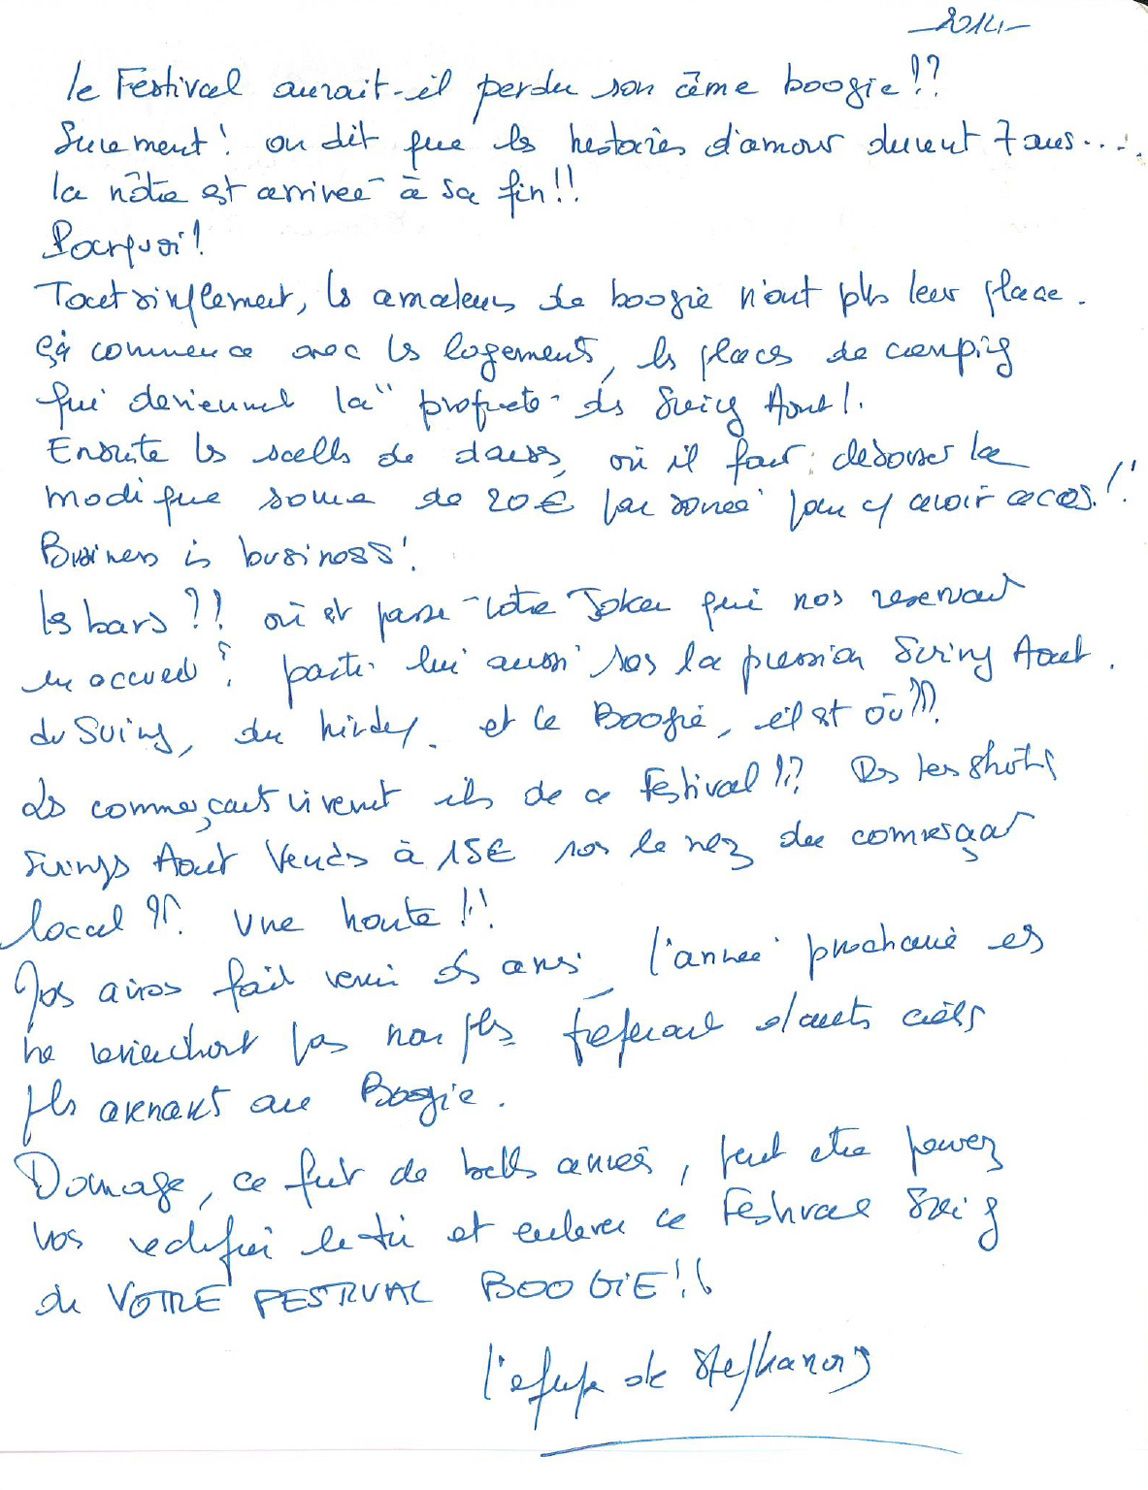 -2014-
le Festival aurait-il perdu son âme boogie!!?
Surement! on dit que les histoires d'amour durent 7 ans....
la nôtre est arrivée à sa fin!!
Pourquoi!
Tout simplement, les amateurs de boogie n'ont plus leur place.
çà commence avec les logements, les places de camping
qui deviennent la" propriété des Swing Aout!.
Ensuite les salles de danses, où il faut débourser la
modique somme de 20€ par soirée pour y avoir accès!!
Business is business!
les bars?! où est passé votre Joker qui nos réservait
un accueil? parti lui aussi sos la pression Swing Aout.
du Swing, du lindy. et le Boogie, il est où??!
Les commerçants vivent ils de ce Festival!!? Des tes shirts
Swings Aout vendus à 15€ sos le nez du commerçant
local??. Une honte!!
Nos avions fait venir des amis l'année prochaine et
ne reviendront pas non plus préférant d'autres ciels
plus avenants au Boogie.
Domage, ce fut de belles années, peut etre pouvez
vos rectifier le tir et enlever ce Festival Swing
de VOTRE FESTIVAL BOOGIE!!
l'équipe de